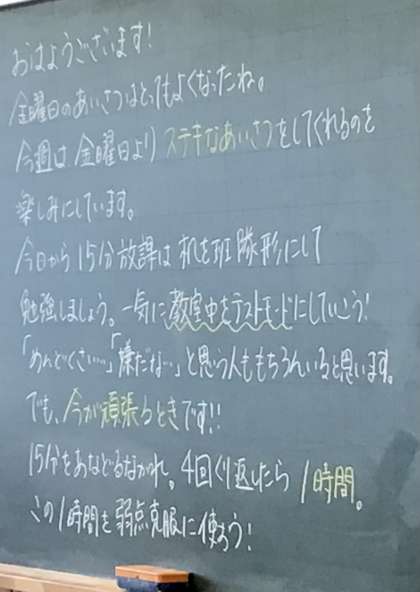 おはようございます!
金曜日のあいさつはとってもよくなったね。
今週は金曜日よりステキなあいさつをしてくれるのを
楽しみにしています。
今日から15分放課は机を班隊形にして
勉強しましょう。一気に教室中をテストモードにしていこう!
「めんどくさい…」「嫌だな…」と思う人ももちろんいると思います。
でも、今が頑張るときです!!
15分をあなどるなかれ。4回くり返したら1時間。
この1時間を弱点克服に使おう!